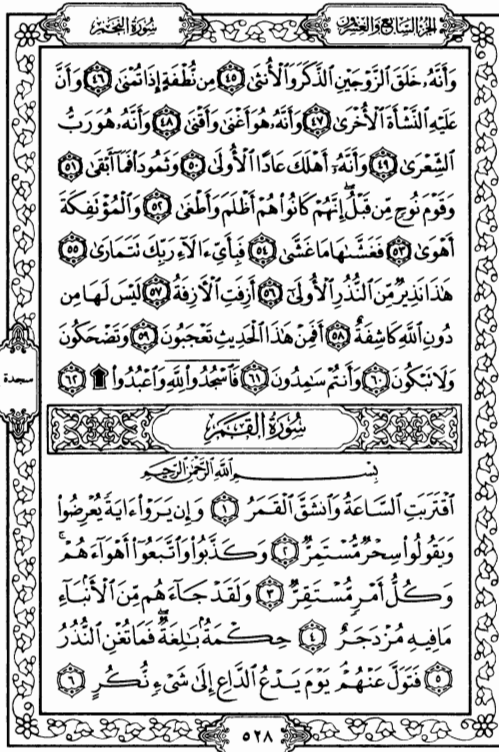 الجزء السابع والعشرون
سورة النجم
وَأَنَّهُۥ خَلَقَ ٱلزَّوْجَيْنِ ٱلذَّكَرَ وَٱلْأُنثَىٰ ٤٥ مِن نُّطْفَةٍ إِذَا تُمْنَىٰ ٤٦ وَأَنَّ
عَلَيْهِ ٱلنَّشْأَةَ ٱلْأُخْرَىٰ ٤٧ وَأَنَّهُۥ هُوَ أَغْنَىٰ وَأَقْنَىٰ ٤٨ وَأَنَّهُۥ هُوَ رَبُّ
ٱلشِّعْرَىٰ ٤٩ وَأَنَّهُۥٓ أَهْلَكَ عَادًا ٱلْأُولَىٰ ٥٠ وَثَمُودَا۟ فَمَآ أَبْقَىٰ ٥١
وَقَوْمَ نُوحٍ مِّن قَبْلُ ۖ إِنَّهُمْ كَانُوا۟ هُمْ أَظْلَمَ وَأَطْغَىٰ ٥٢ وَٱلْمُؤْتَفِكَةَ
أَهْوَىٰ ٥٣ فَغَشَّىٰهَا مَا غَشَّىٰ ٥٤ فَبِأَىِّ ءَالَآءِ رَبِّكَ تَتَمَارَىٰ ٥٥
هَٰذَا نَذِيرٌ مِّنَ ٱلنُّذُرِ ٱلْأُولَىٰٓ ٥٦ أَزِفَتِ ٱلْـَٔازِفَةُ ٥٧ لَيْسَ لَهَا مِن
دُونِ ٱللَّهِ كَاشِفَةٌ ٥٨ أَفَمِنْ هَٰذَا ٱلْحَدِيثِ تَعْجَبُونَ ٥٩ وَتَضْحَكُونَ
وَلَا تَبْكُونَ ٦٠ وَأَنتُمْ سَٰمِدُونَ ٦١ فَٱسْجُدُوا۟ لِلَّهِ وَٱعْبُدُوا۟ ۩ ٦٢
سجدة
سُورَةُ القَمَرِ
بِسْمِ ٱللَّهِ ٱلرَّحْمَٰنِ ٱلرَّحِيمِ
ٱقْتَرَبَتِ ٱلسَّاعَةُ وَٱنشَقَّ ٱلْقَمَرُ ١ وَإِن يَرَوْا۟ ءَايَةً يُعْرِضُوا۟
وَيَقُولُوا۟ سِحْرٌ مُّسْتَمِرٌّ ٢ وَكَذَّبُوا۟ وَٱتَّبَعُوٓا۟ أَهْوَآءَهُمْ ۚ
وَكُلُّ أَمْرٍ مُّسْتَقِرٌّ ٣ وَلَقَدْ جَآءَهُم مِّنَ ٱلْأَنۢبَآءِ
مَا فِيهِ مُزْدَجَرٌ ٤ حِكْمَةٌۢ بَٰلِغَةٌ ۖ فَمَا تُغْنِ ٱلنُّذُرُ
٥ فَتَوَلَّ عَنْهُمْ ۘ يَوْمَ يَدْعُ ٱلدَّاعِ إِلَىٰ شَىْءٍ نُّكُرٍ ٦
٥٢٨